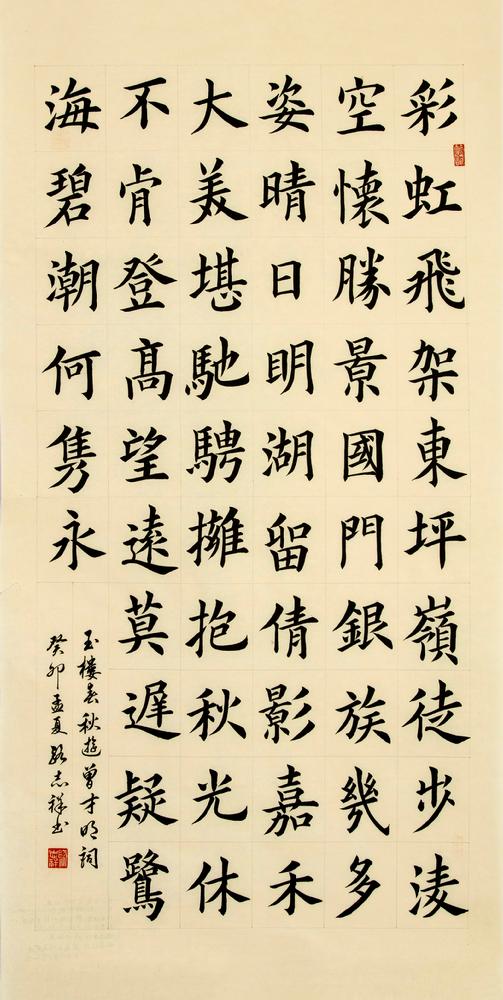 彩虹飛架東坪嶺徒步淩
空懷勝景國門銀族幾多
姿晴日眀湖留倩影嘉禾
大美堪馳騁擁抱秋光休
不肯登髙望遠莫遲疑鷺
海碧潮何隽永
玉樓春秋遊曾才明詞
癸卯孟夏路志祥书